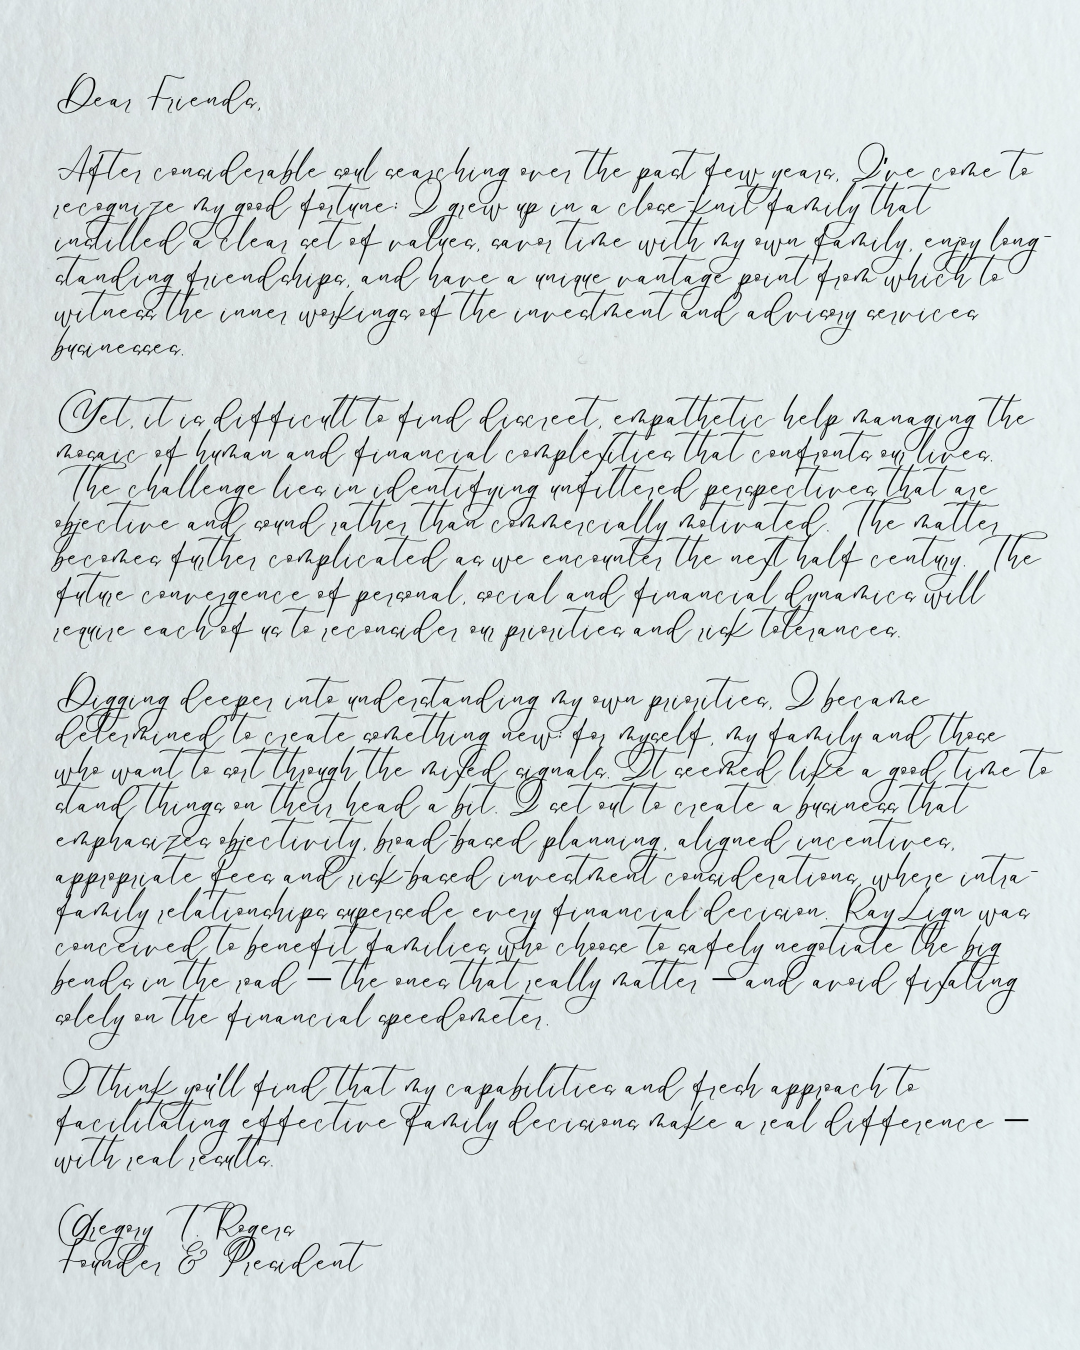 Dear Friends,
After considerable soul searching over the past few years, I've come to
recognize my good fortune: I grew up in a close-knit family that
instilled a clear set of values, savor time with my own family, enjoy long-
standing friendships, and have a unique vantage point from which to
witness the inner workings of the investment and advisory services
businesses.
Yet, it is difficult to find discreet, empathetic help managing the
mosaic of human and financial complexities that confronts our lives.
The challenge lies in identifying unfiltered perspectives that are
objective and sound rather than commercially motivated. The matter
becomes further complicated as we encounter the next half century. The
future convergence of personal, social and financial dynamics will
require each of us to reconsider our priorities and risk tolerances.
Digging deeper into understanding my own priorities, I became
determined to create something new: for myself, my family and those
who want to sort through the mixed signals. It seemed like a good time to
stand things on their head a bit. I set out to create a business that
emphasizes objectivity, broad-based planning, aligned incentives,
appropriate fees and risk-based investment considerations, where intra-
family relationships supersede every financial decision. RayLign was
conceived to benefit families who choose to safely negotiate the big
bends in the road — the ones that really matter — and avoid fixating
solely on the financial speedometer.
I think you'll find that my capabilities and fresh approach to
facilitating effective family decisions make a real difference —
with real results.
Gregory T. Rogers
Founder & President